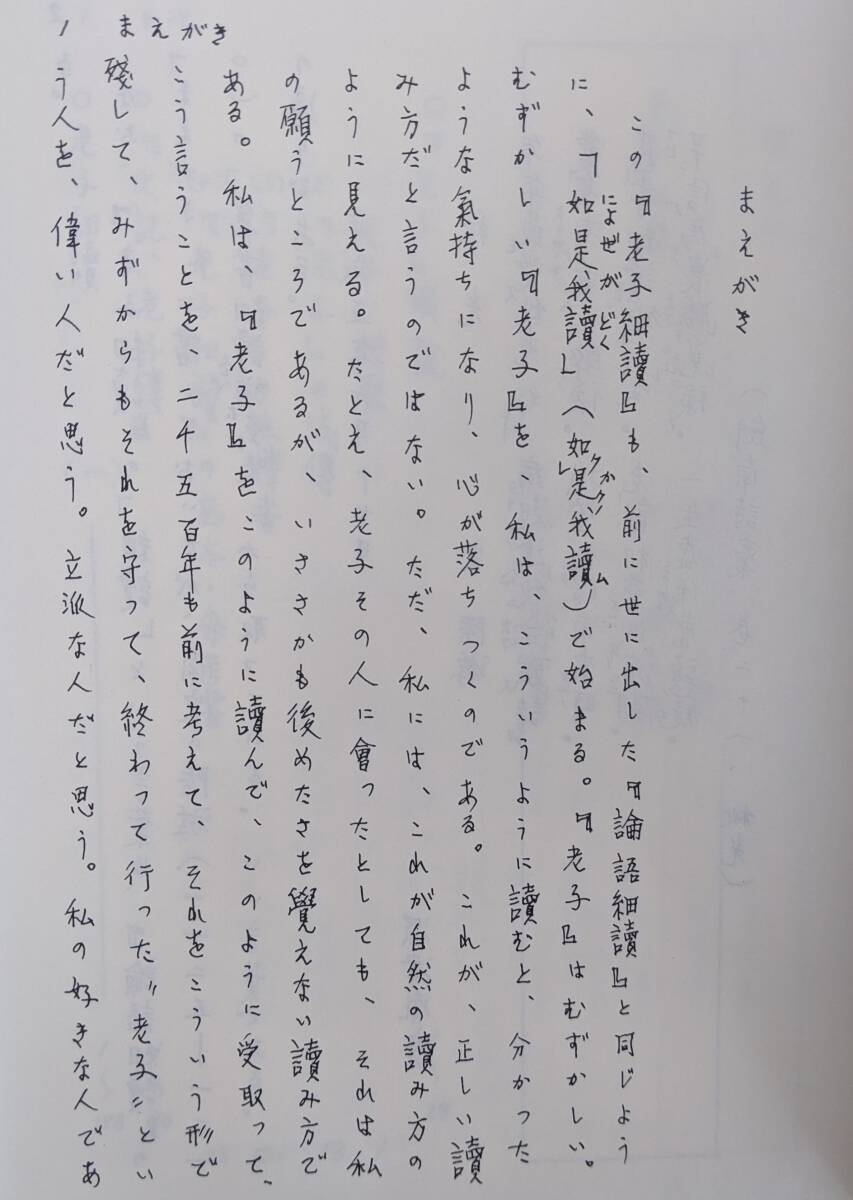 1 まえがき
まえがき
この『老子細讀』も、前に世に出した『論語細讀』と同じよう
に、「如是我讀」(如是我讀)で始まる。『老子』はむずかしい。
によぜがどく
レ クかクノム
むずかしい『老子』を、私は、こういうように讀むと、分かった
ような氣持ちになり、心が落ちつくのである。これが、正しい讀
み方だと言うのではない。ただ、私には、これが自然の讀み方の
ように見える。たとえ、老子その人に會ったとしても、それは私
の願うところであるが、いささかも後めたさを覺えない讀み方で
ある。私は、『老子』をこのように讀んで、このように受取って、
こう言うことを、二千五百年も前に考えて、それをこういう形で
殘して、みずからもそれを守って、終わって行った〝老子〟とい
う人を、偉い人だと思う。立派な人だと思う。私の好きな人であ